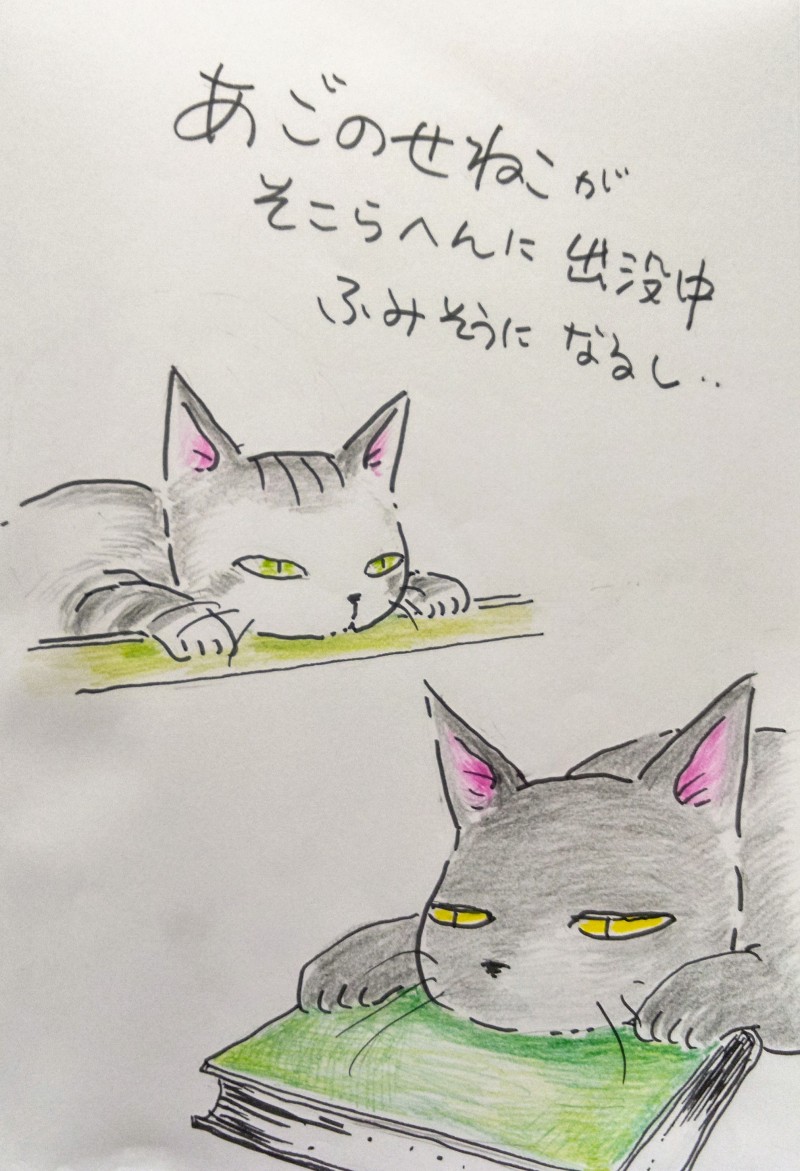 あごのせねこが
そこらへんに出没中
ふみそうになるし..